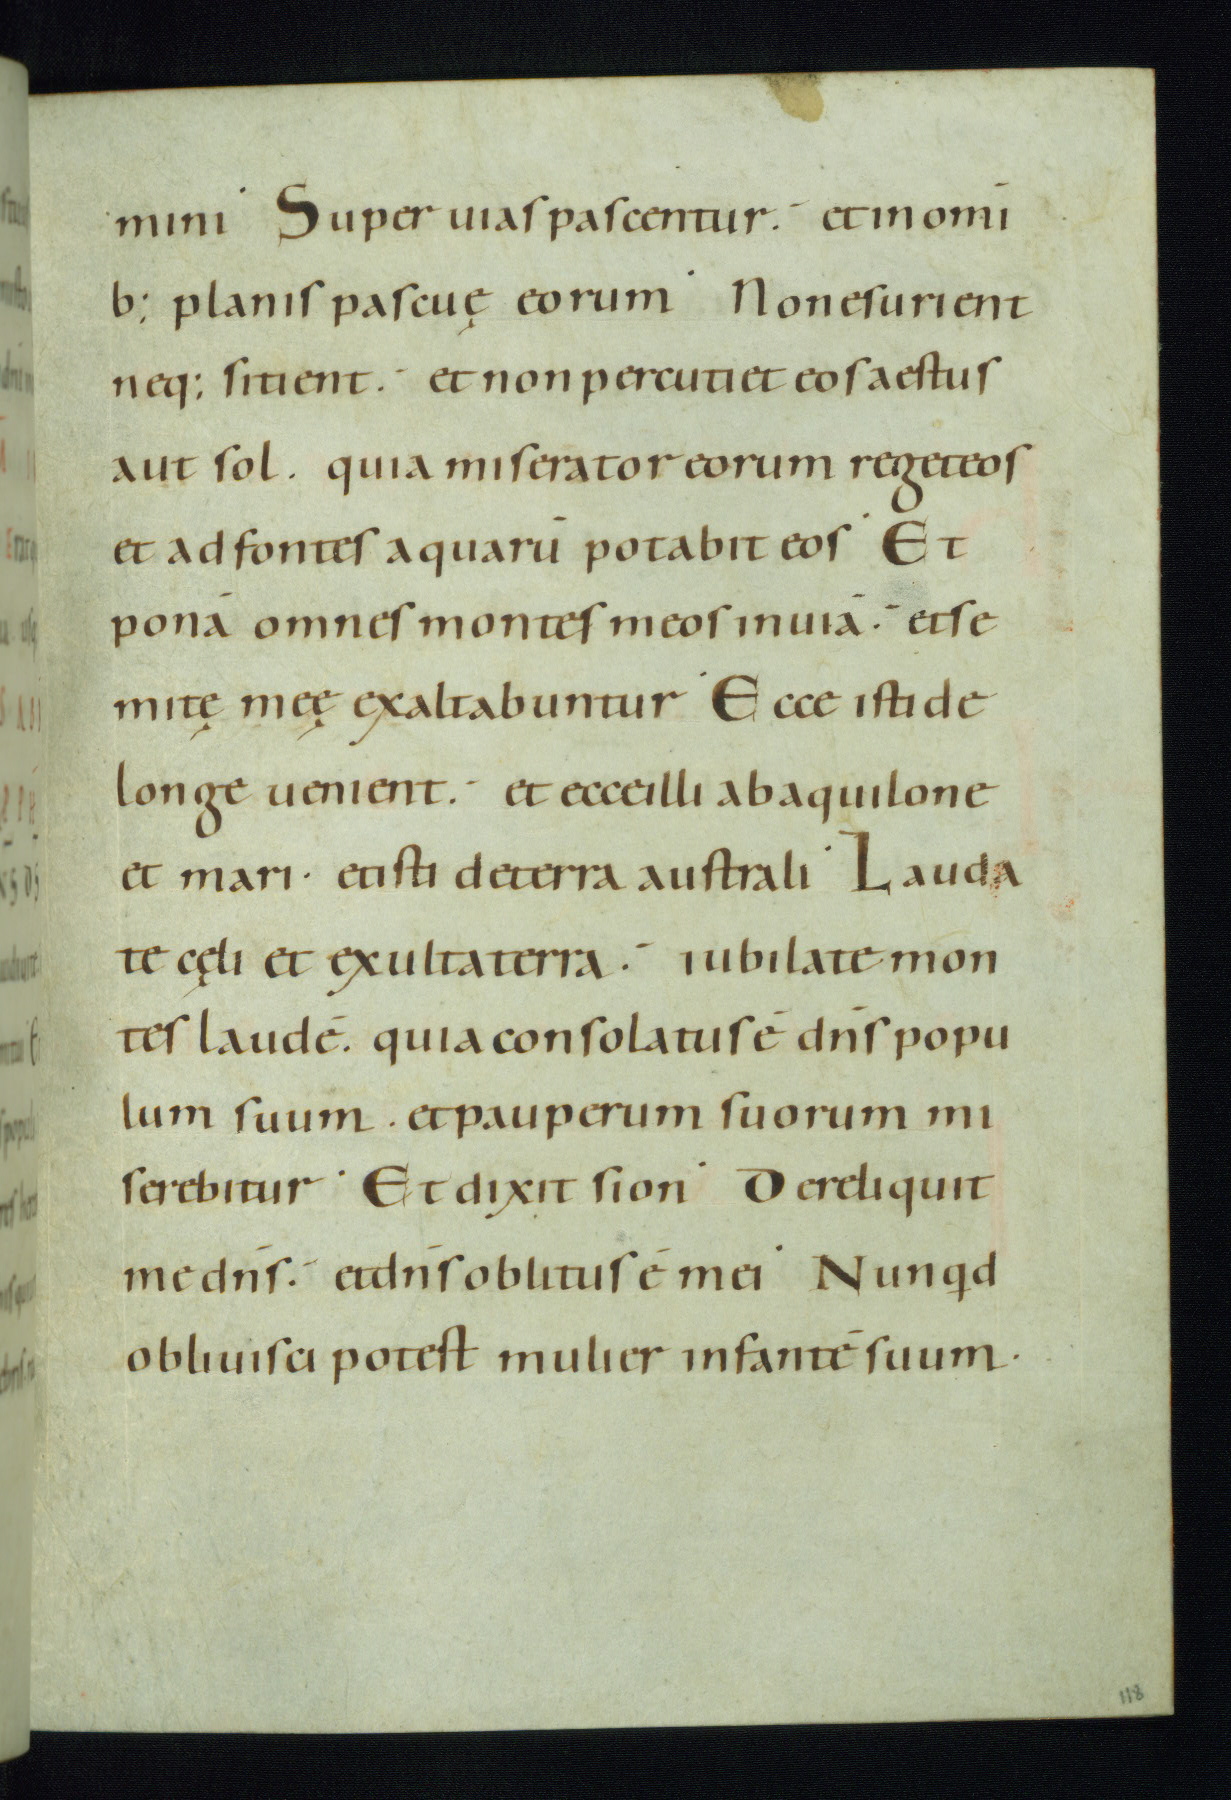 mini· Super uias pascentur. et in omi
b; planis pascuę eorum· Non esurient
neq; sitient. et non percutiet eos aestus
aut sol. quia miserator eorum reget eos
et ad fontes aquarū potabit eos· Et
ponā omnes montes meos in uiā. et se
mitę meę exaltabuntur· Ecce isti de
longe uenient. et ecce illi ab aquilone
et mari· et isti de terra australi· Lauda
te cęli et exulta terra. iubilate mon
tes laudē. quia consolatus ē dn̄s popu
lum suum. et pauperum suorum mi
serebitur· Et dixit sion· Dereliquit
me dn̄s. et dn̄s oblitus ē mei· Nunqd
obliuisci potest mulier infantē suum·
118